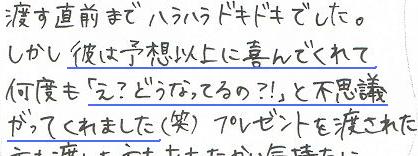 渡す直前までハラハラドキドキでした。
しかし彼は予想以上に喜んでくれて
何度も「え?どうなってるの?!」と不思議
がってくれました(笑) プレゼントを渡された